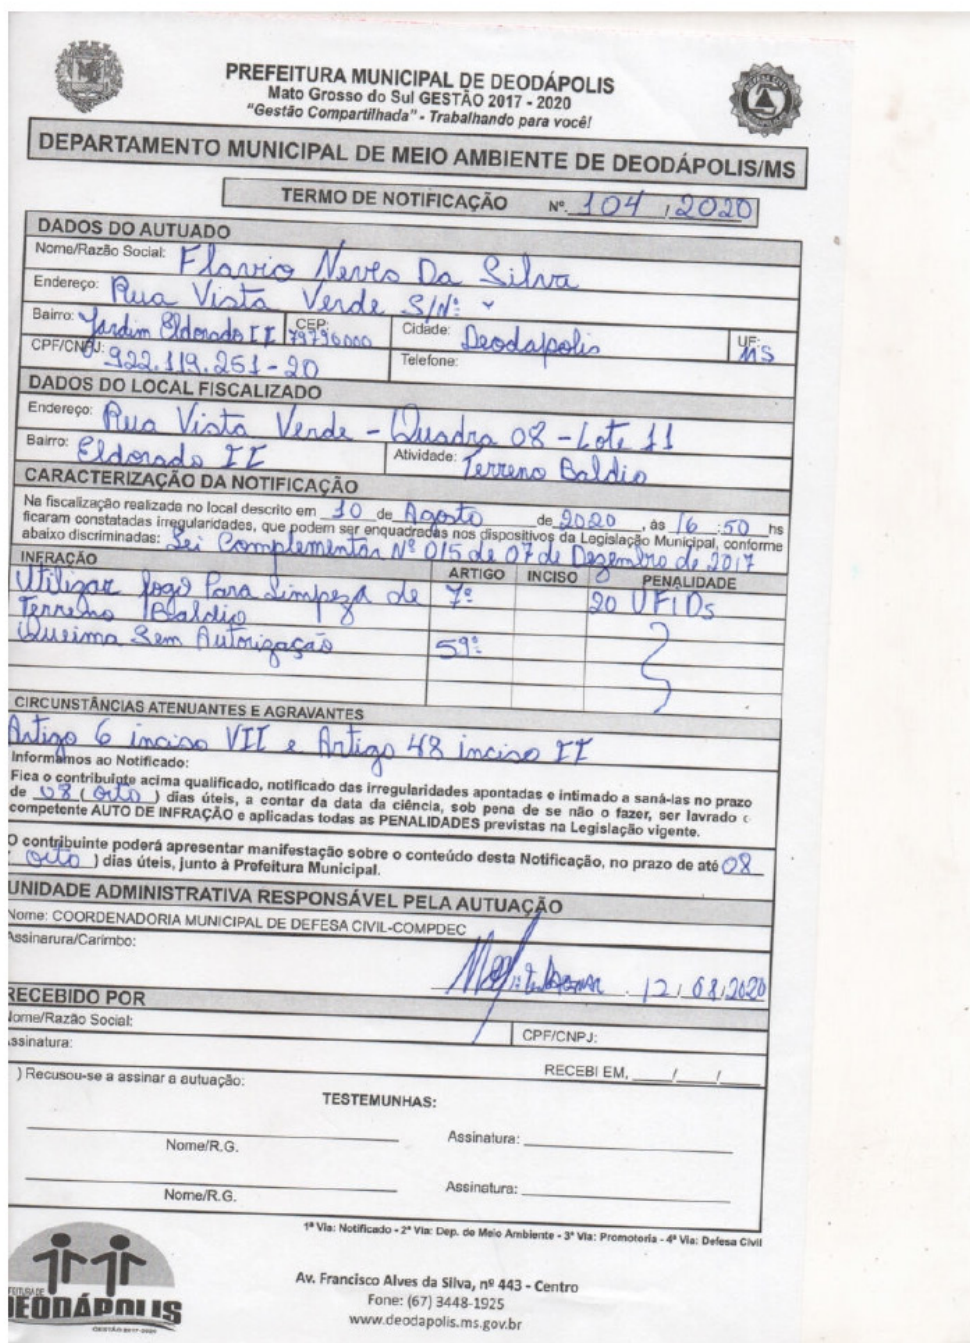 PREFEITURA MUNICIPAL DE DEODÁPOLIS
Mato Grosso do Sul GESTÃO 2017 - 2020
"Gestão Compartilhada" - Trabalhando para você!
DEPARTAMENTO MUNICIPAL DE MEIO AMBIENTE DE DEODÁPOLIS/MS
TERMO DE NOTIFICAÇÃO Nº. 104 / 2020
DADOS DO AUTUADO
Nome/Razão Social: Flavio Neves Da Silva
Endereço: Rua Vista Verde S/Nº
Bairro: Jardim Eldorado II CEP: 79790000 Cidade: Deodapolis UF: MS
CPF/CNPJ: 922.119.251-20 Telefone:
DADOS DO LOCAL FISCALIZADO
Endereço: Rua Vista Verde - Quadra 08 - Lote 11
Bairro: Eldorado II Atividade: Terreno Baldio
CARACTERIZAÇÃO DA NOTIFICAÇÃO
Na fiscalização realizada no local descrito em 10 de Agosto de 2020, às 16:50 hs
ficaram constatadas irregularidades, que podem ser enquadradas nos dispositivos da Legislação Municipal, conforme
abaixo discriminadas: Lei Complementar Nº 015 de 07 de Dezembro de 2017
INFRAÇÃO ARTIGO INCISO PENALIDADE
Utilizar fogo Para Limpeza de 7º 20 UFIDs
Terreno Baldio
Queima Sem Autorização 59º
CIRCUNSTÂNCIAS ATENUANTES E AGRAVANTES
Artigo 6 inciso VII e Artigo 48 inciso II
Informamos ao Notificado:
Fica o contribuinte acima qualificado, notificado das irregularidades apontadas e intimado a saná-las no prazo
de 08 ( oito ) dias úteis, a contar da data da ciência, sob pena de se não o fazer, ser lavrado o
competente AUTO DE INFRAÇÃO e aplicadas todas as PENALIDADES previstas na Legislação vigente.
O contribuinte poderá apresentar manifestação sobre o conteúdo desta Notificação, no prazo de até 08
( oito ) dias úteis, junto à Prefeitura Municipal.
UNIDADE ADMINISTRATIVA RESPONSÁVEL PELA AUTUAÇÃO
Nome: COORDENADORIA MUNICIPAL DE DEFESA CIVIL-COMPDEC
Assinarura/Carimbo:
12/08/2020
RECEBIDO POR
Nome/Razão Social:
CPF/CNPJ:
Assinatura:
RECEBI EM, ___/___/___
) Recusou-se a assinar a autuação:
TESTEMUNHAS:
Assinatura:
Nome/R.G.
Assinatura:
Nome/R.G.
1ª Via: Notificado - 2ª Via: Dep. de Meio Ambiente - 3ª Via: Promotoria - 4ª Via: Defesa Civil
PREFEITURA DE
DEODÁPOLIS
GESTÃO 2017-2020
Av. Francisco Alves da Silva, nº 443 - Centro
Fone: (67) 3448-1925
www.deodapolis.ms.gov.br